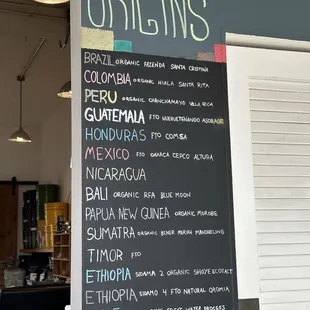 ORIGINS
BRAZIL ORGANIC FAZENDA SANTA CRISTINA
COLOMBIA ORGANIC HUILA SANTA RITA
PERU ORGANIC CHANCHAMAYO VILLA RICA
GUATEMALA FTO HUEHUETENANGO ASOBAGRI
HONDURAS FTO COMSA
MEXICO FTO OAXACA CEPCO ALTURA
NICARAGUA
BALI ORGANIC RFA BLUE MOON
PAPUA NEW GUINEA ORGANIC MAROBE
SUMATRA ORGANIC BENER MERIAH MANDHELING
TIMOR FTO
ETHIOPIA SIDAMA 2 ORGANIC
ETHIOPIA SIDAMO 4 FTO NATURAL OROMIA
WATER PROCESS